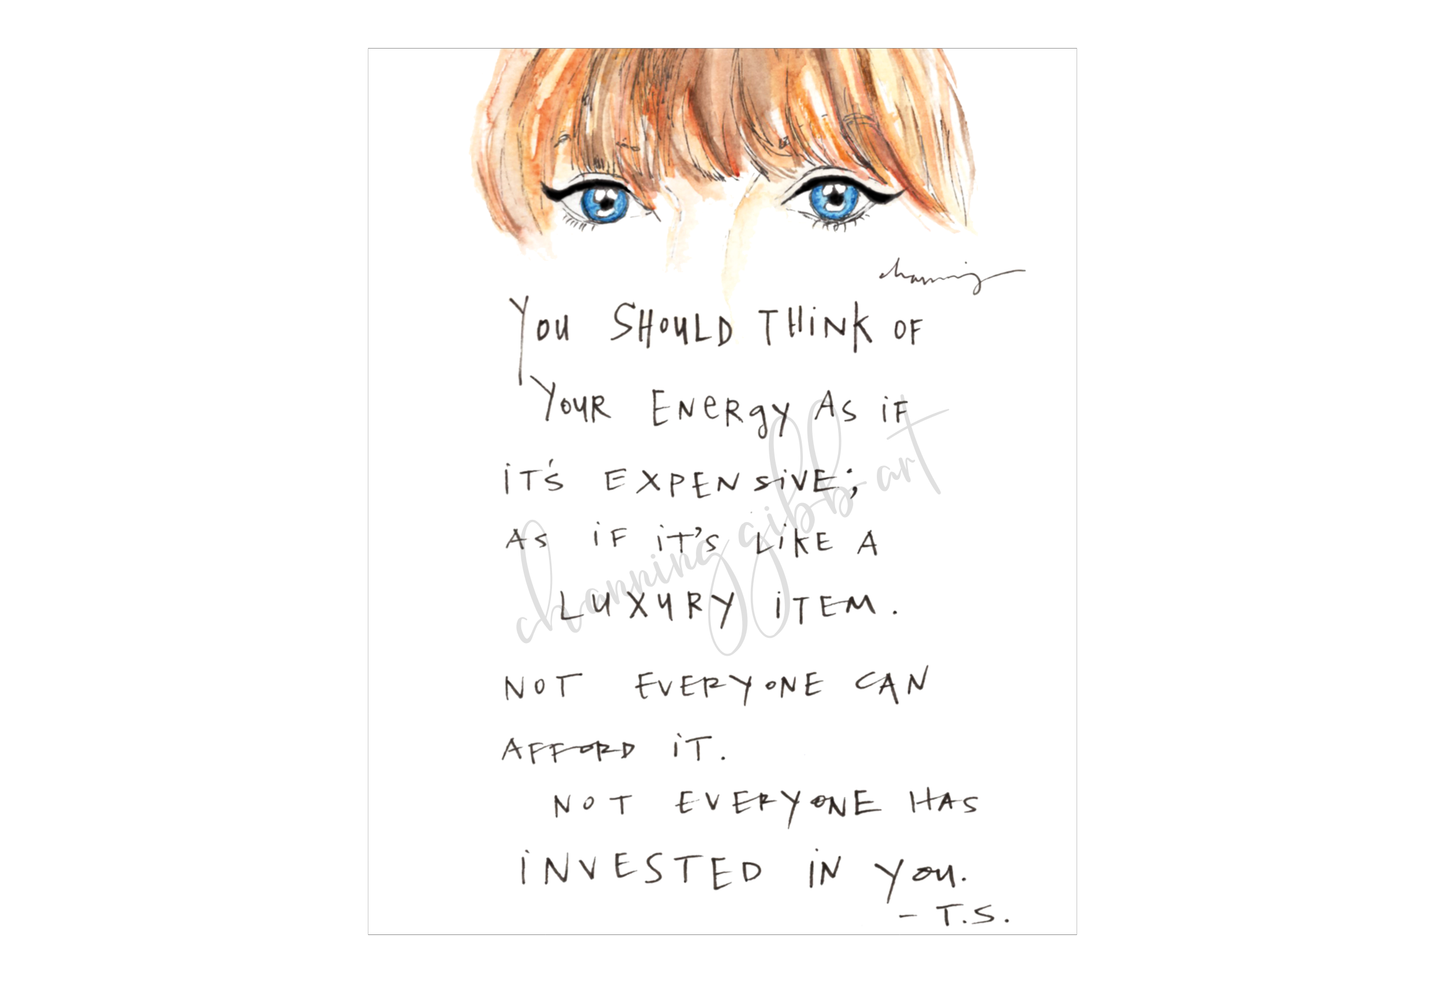 channing
You SHOULD THiNK OF
YOUR ENeRgy AS iF
iT'S EXPENSiVE;
AS iF iT'S LiKE A
LUXURY iTEM.
NOT EVERYONE CAN
AFFORD iT.
NOT EVERYONE HAS
iNVESTED iN you.
- T.S.
channing gibb art